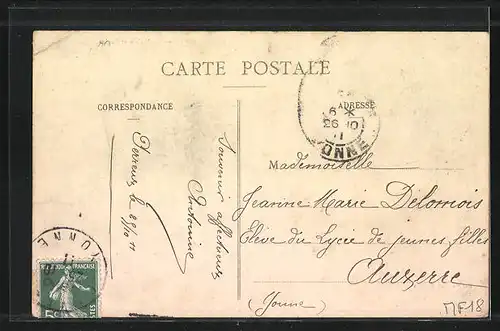 CARTE POSTALE
CORRESPONDANCE
ADRESSE
Perreux le
Souvenir affectueux
Antoinine
Mademoiselle
Jeanne Marie Delomois
Elève du Lycée de jeunes filles
Auxerre
(Yonne)
YONNE
26 10
11
FRANÇAISE
5c
POSTES
MF18